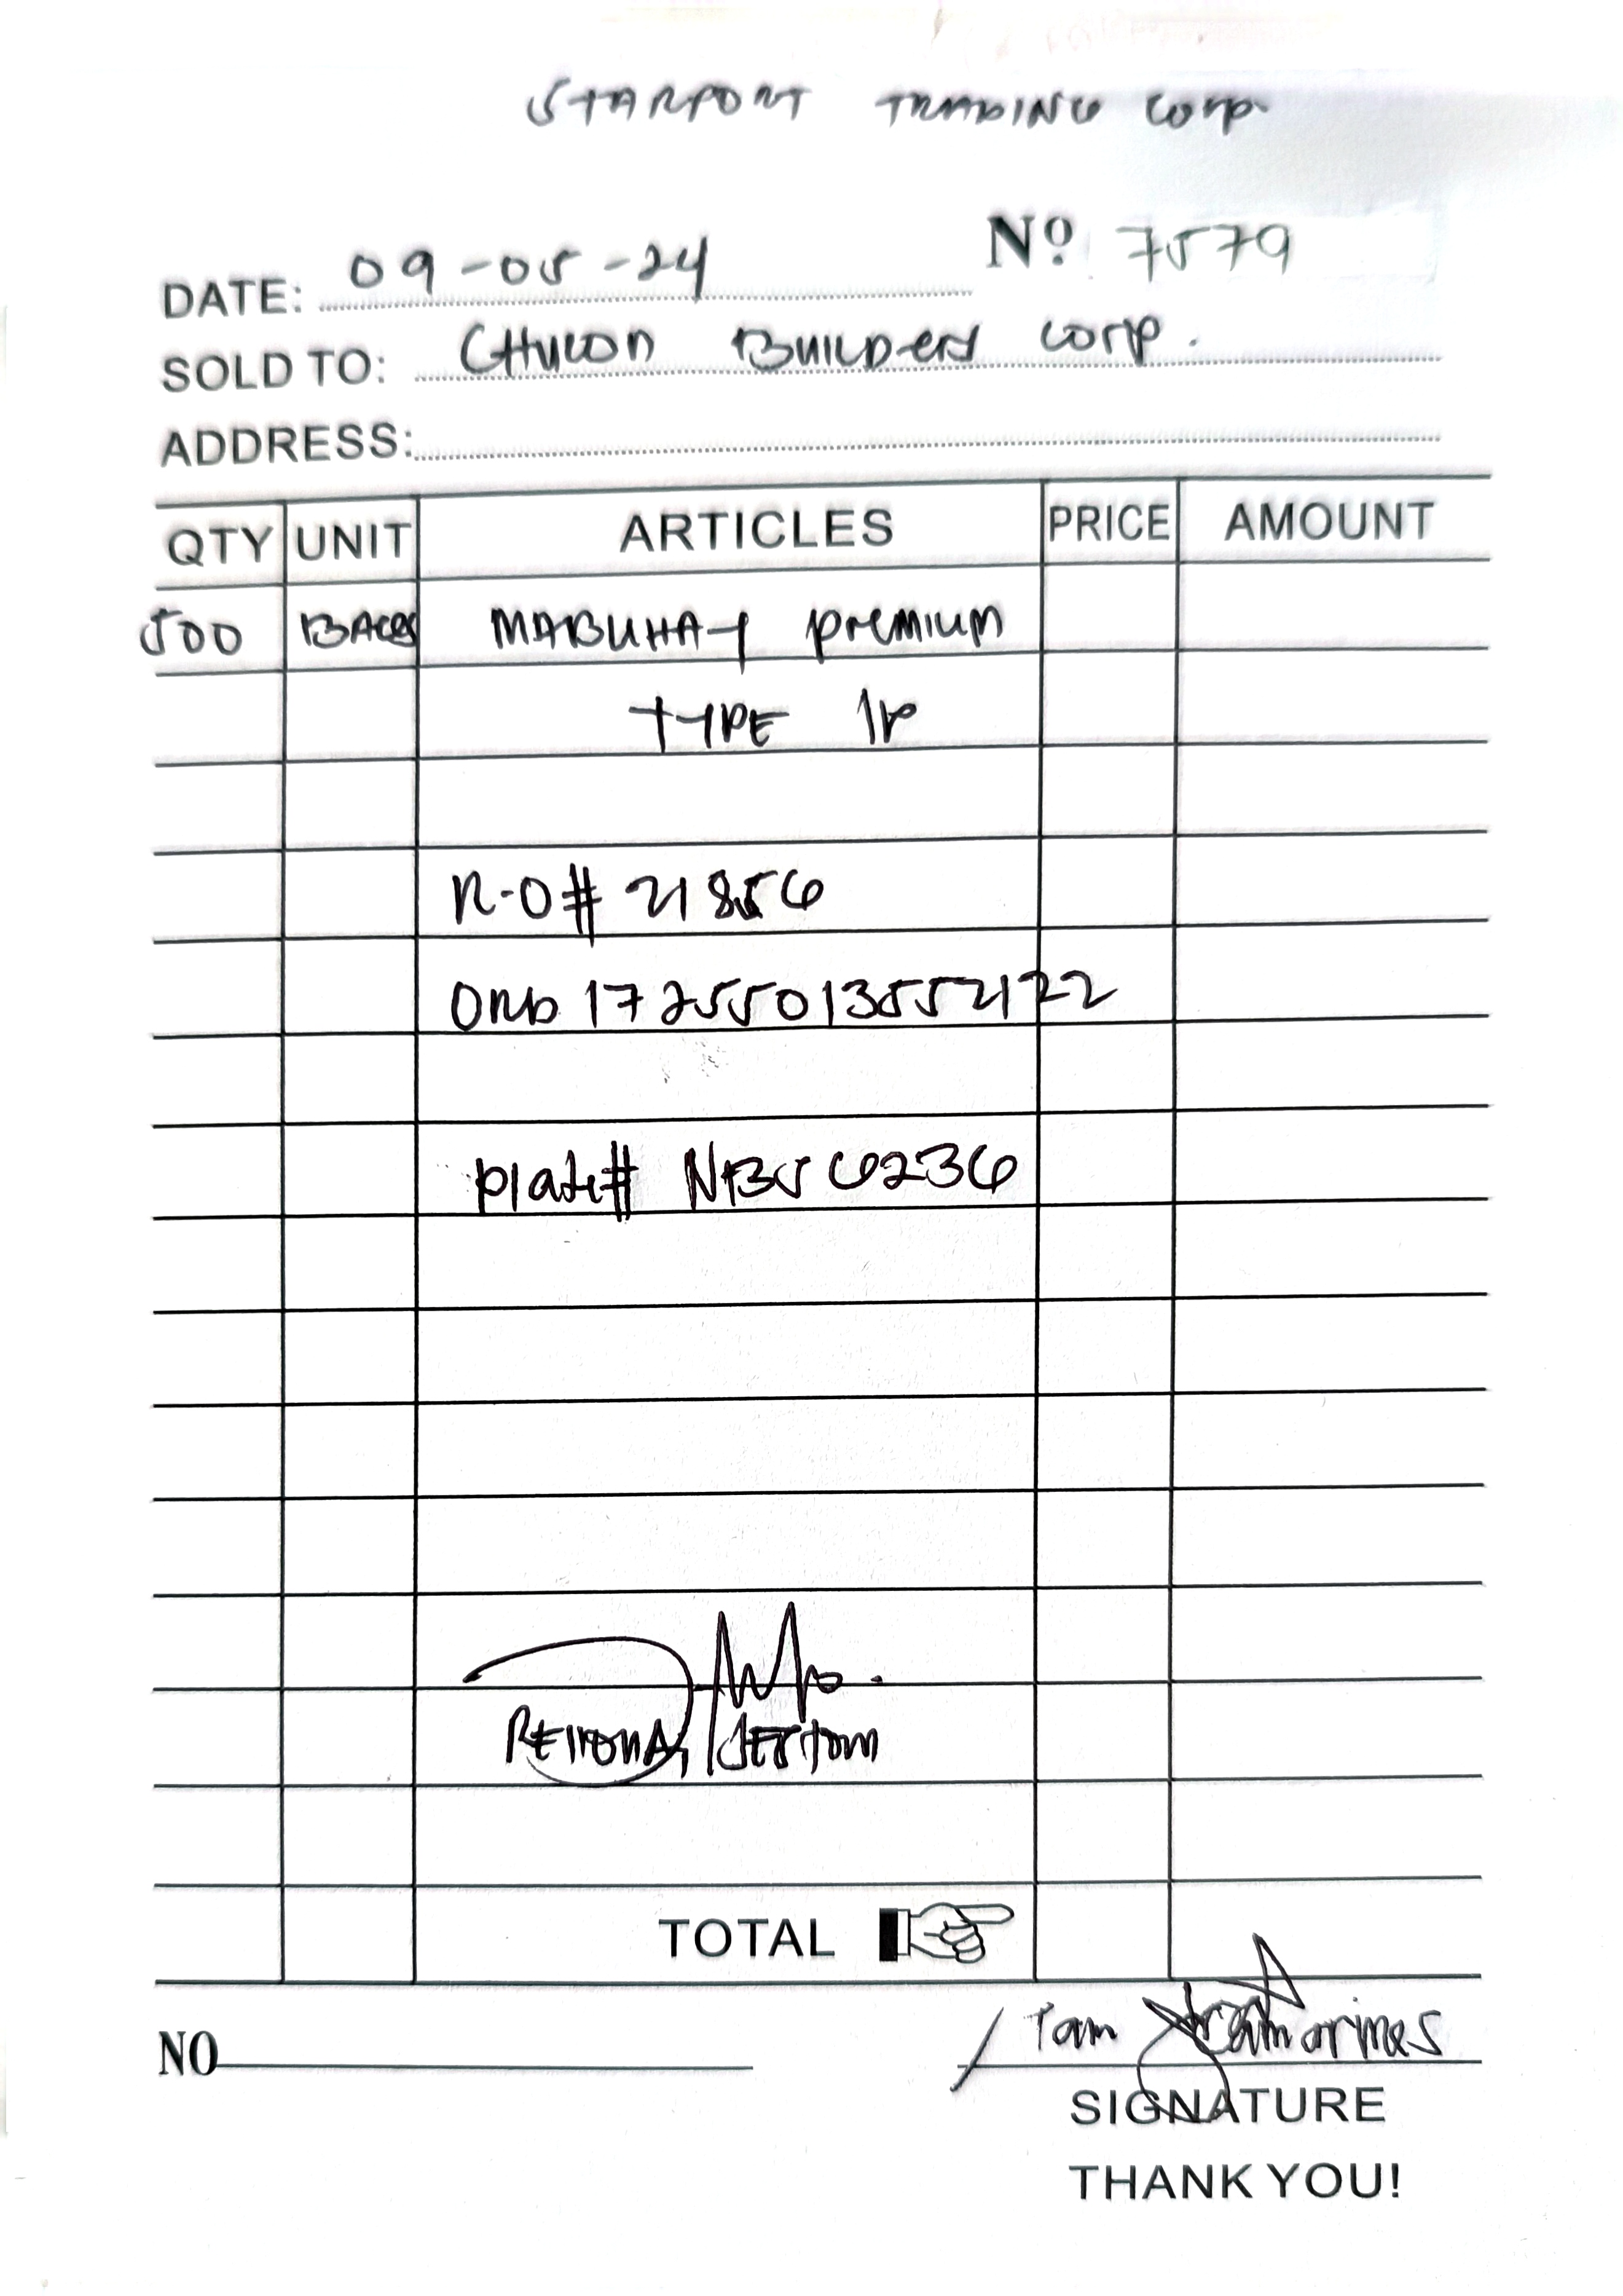 STARPORT TRADING Corp.
DATE: 09-05-24 Nº 7579
SOLD TO: CHUCON BUILDERS CORP.
ADDRESS:
QTY UNIT ARTICLES PRICE AMOUNT
500 BAGS MABUHAY premium
TYPE 1P
R-O# 21856
ORD 1725501355 2122
plate# NBS 6236
TOTAL
NO
Tam
SIGNATURE
THANK YOU!